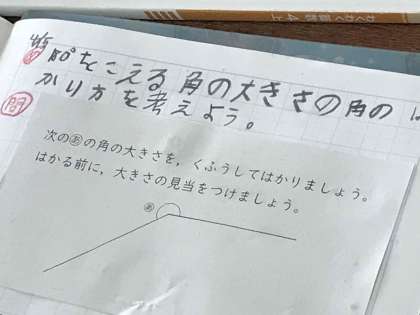 180°をこえる角の大きさの角のは
かり方を考えよう。
問
次のあの角の大きさを，くふうしてはかりましょう。
はかる前に，大きさの見当をつけましょう。
あ